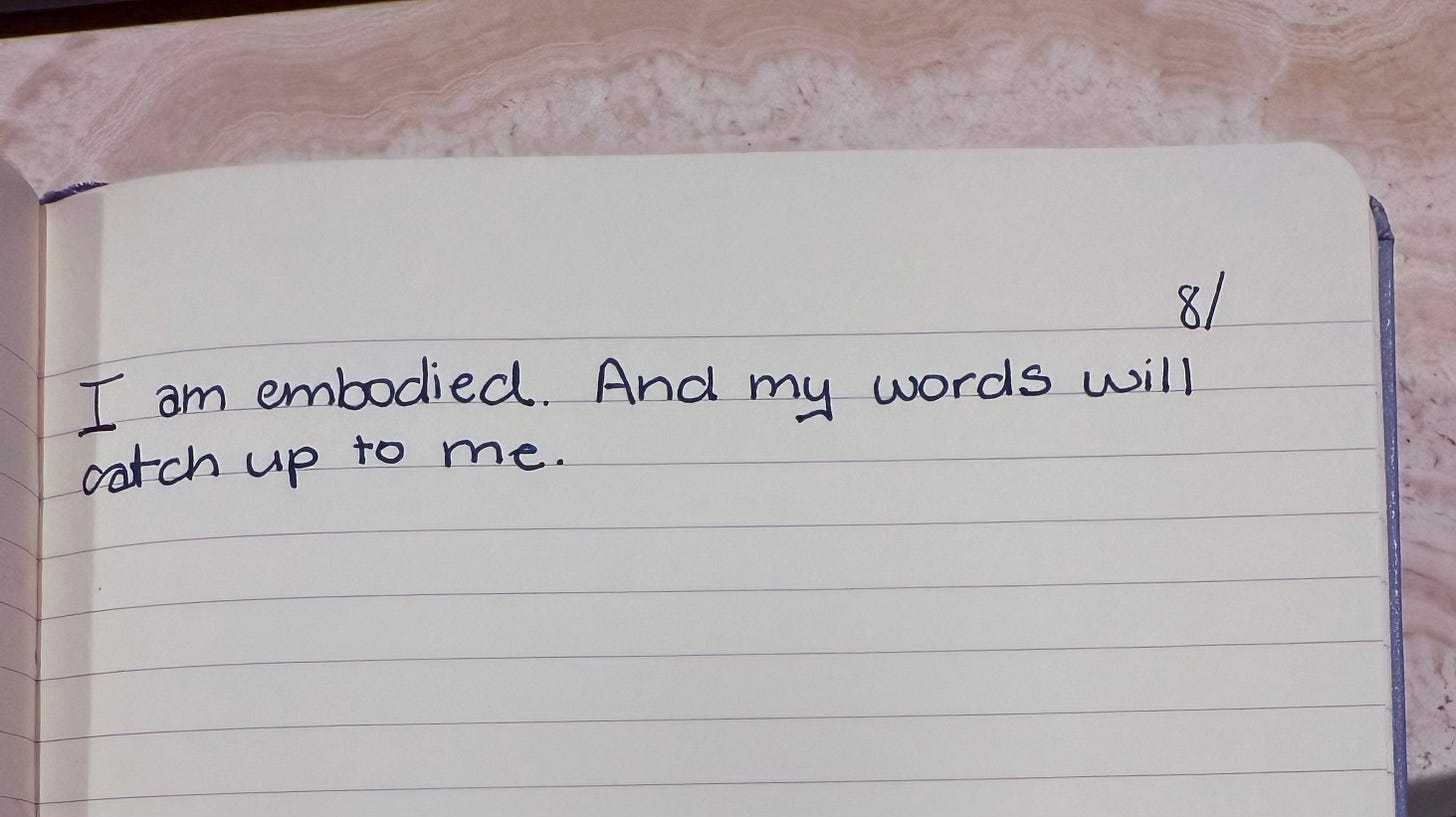 8/
I am embodied. And my words will
catch up to me.